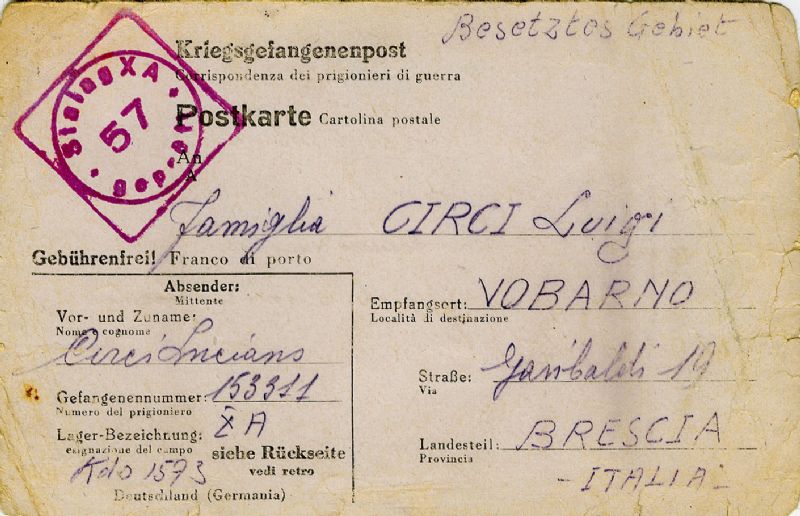 Besetztes Gebiet
Kriegsgefangenenpost
Corrispondenza dei prigionieri di guerra
Postkarte Cartolina postale
Stalag X A
57
gepr.
An
A
Famiglia CIRCI Luigi
Gebührenfrei! Franco di porto
Absender:
Mittente
Vor- und Zuname:
Nome e cognome
Circi Luciano
Gefangenennummer: 153311
Numero del prigioniero
Lager-Bezeichnung: X A
esignazione del campo
siehe Rückseite
vedi retro
Kdo 1573
Deutschland (Germania)
Empfangsort: VOBARNO
Località di destinazione
Straße: Garibaldi 19
Via
Landesteil: BRESCIA
Provincia
- ITALIA -